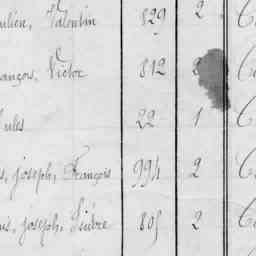 ulien, Valentin 829 2 C
ançois, Victor 812 2 C
ules 22 1 C
s, joseph, François 994 2 C
us, joseph, Isidore 805 2 C